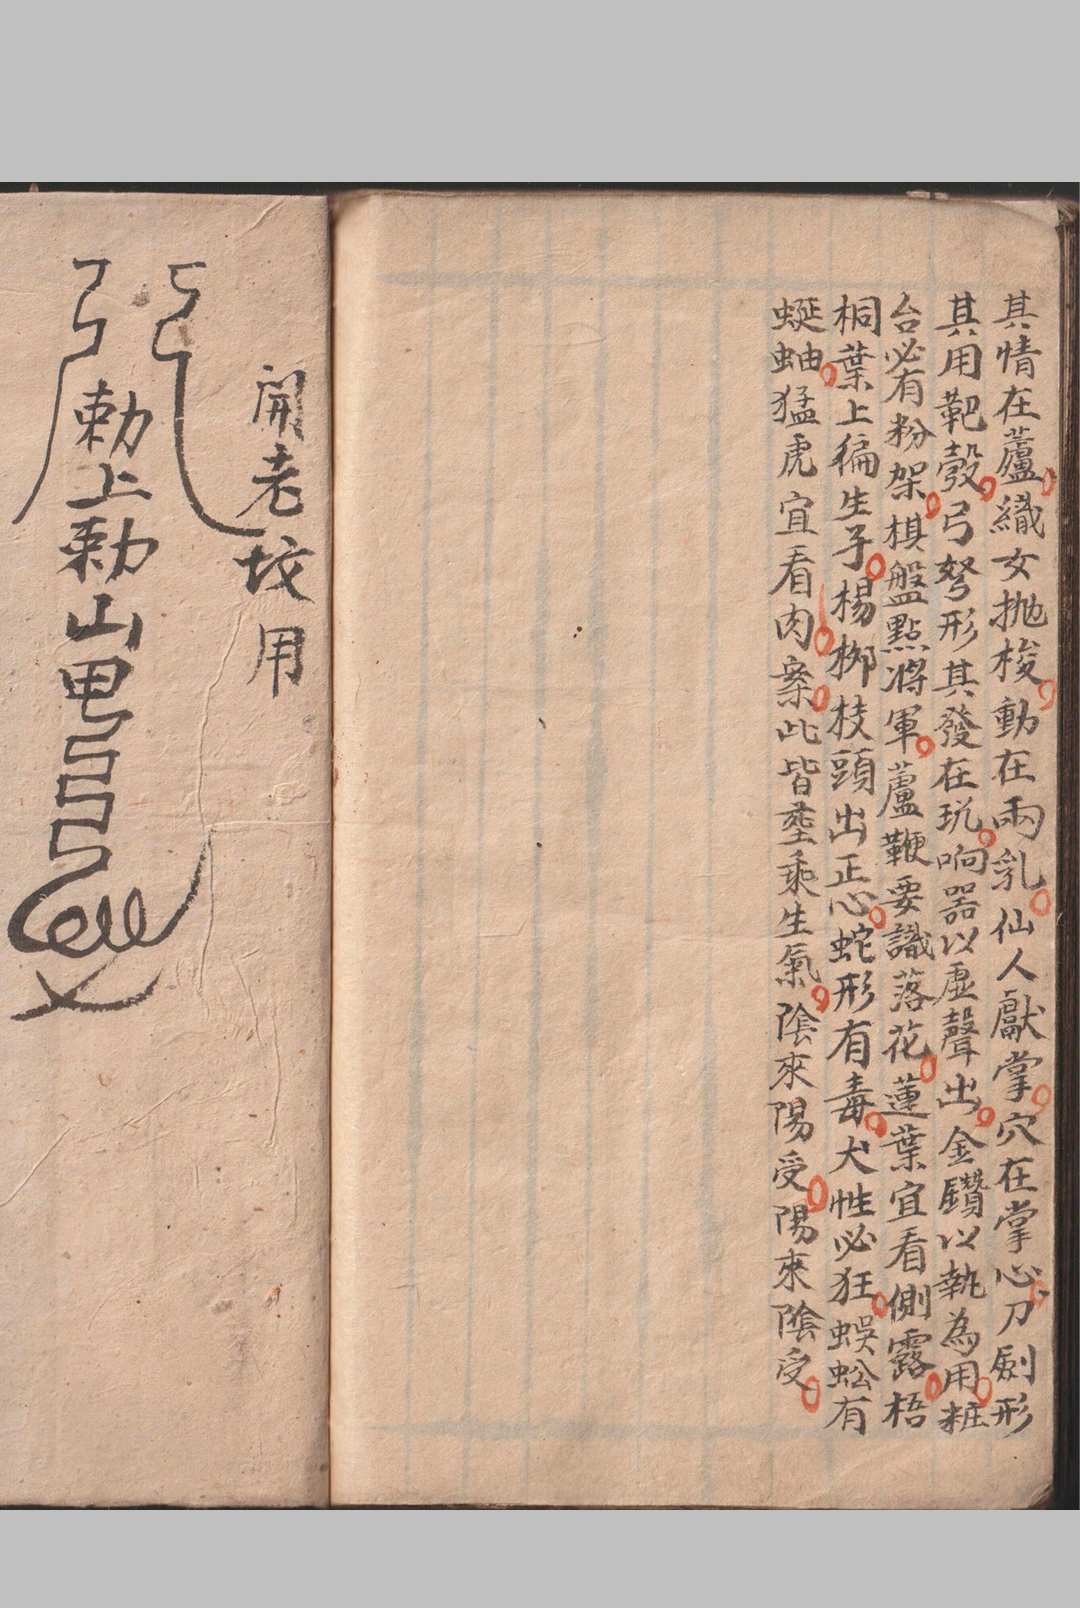 其情在蘆織女抛梭動在兩乳仙人獻掌穴在掌心刀劍形
其用靶彀弓弩形其發在玩响器以虛聲出金鑽以執為用粧
台必有粉架棋盤點將軍蘆鞭要識落花蓮葉宜看側露梧
桐葉上徧生子楊柳枝頭出正心蛇形有毒犬性必狂蜈蚣有
蜒蚰猛虎宜看肉案此皆塟乘生氣陰來陽受陽來陰受
開老坟用
勅上勅山